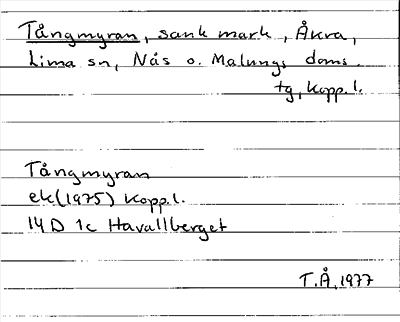 Tångmyran, sank mark, Åkra,
Lima sn, Nås o. Malungs doms.
tg, Kopp. l.
Tångmyran
ek(1975) Kopp. l.
14D 1c Havallberget
T.Å, 1977